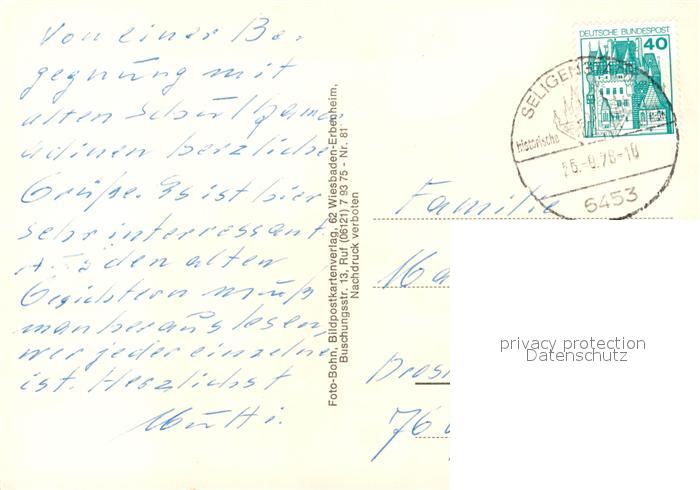 Von einer Be-
gegnung mit
alten Schulkame-
radinnen herzliche
Grüße. Es ist hier
sehr interressant
Aus den alten
Gesichtern muß
man herauslesen,
wer jeder einzelne
ist. Herzlichst
Mutti.
Foto-Bohn, Bildpostkartenverlag, 62 Wiesbaden-Erbenheim,
Buschungsstr. 13, Ruf (06121) 7 93 75 - Nr. 81
Nachdruck verboten
DEUTSCHE BUNDESPOST
40
SELIGENST
historische
6453
Familie
Ma
76
privacy protection
Datenschutz